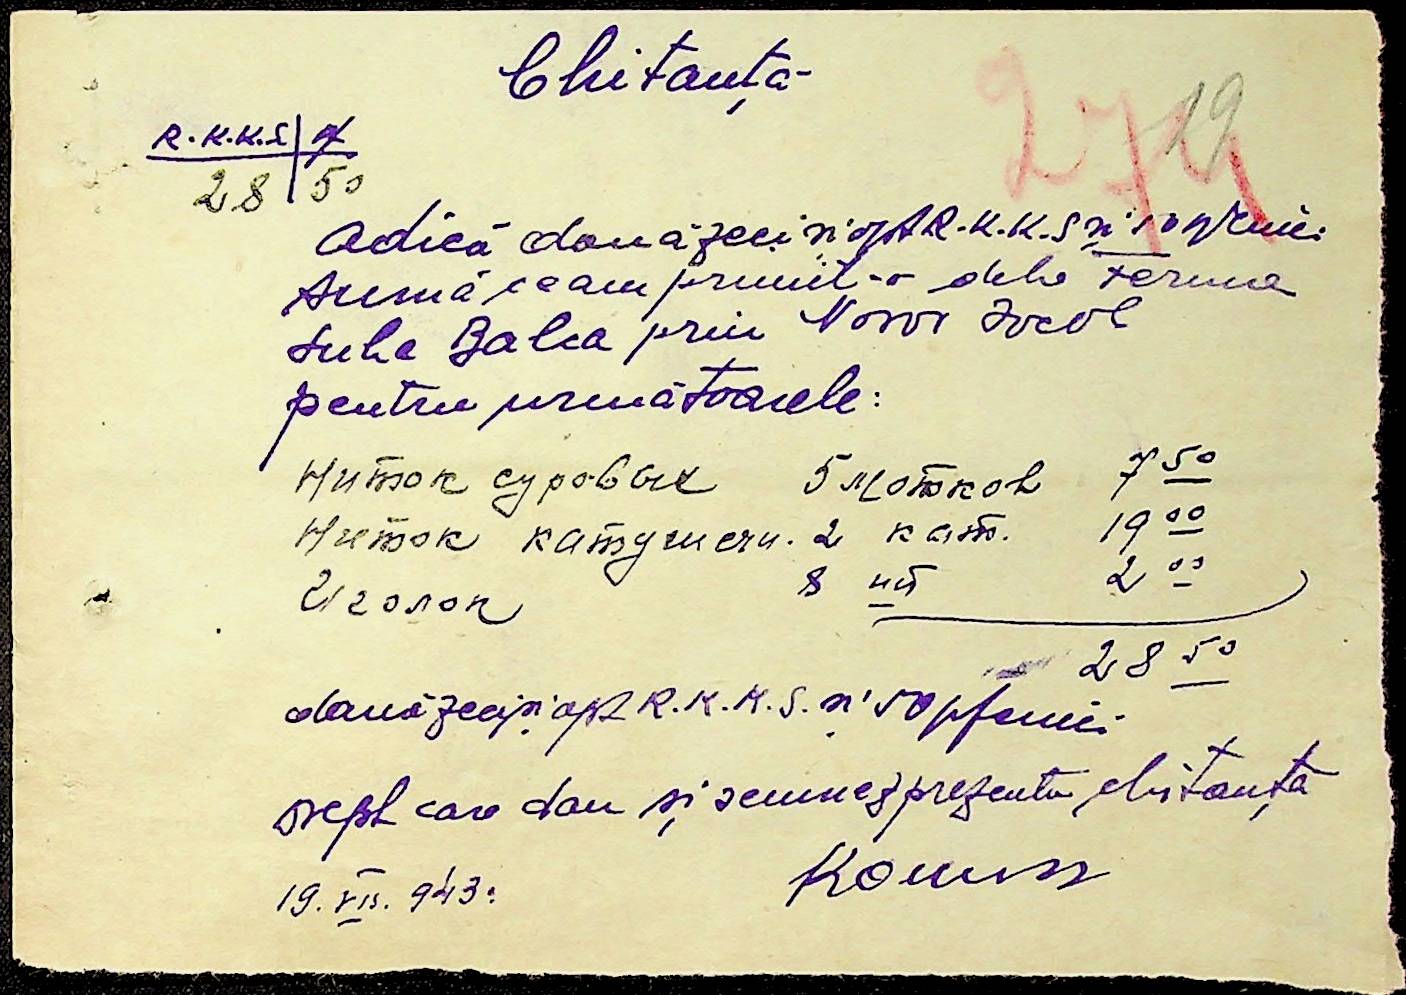 Chitanță
274
19
R.K.K.S | pf
28 | 50
Adică douăzeci și opt R.K.K.S și 50 pfenici
suma ce am primit-o dela ferma
Suha Balca prin Novoi
pentru următoarele:
Ниток суровых 5 мотков 7 50
Ниток катушечн. 2 кат. 19 00
Иголок 8 шт 2 00
28 50
douăzeci și opt R.K.K.S. și 50 pfenici
drept care dau și semnez prezenta chitanță
19. VII. 943.